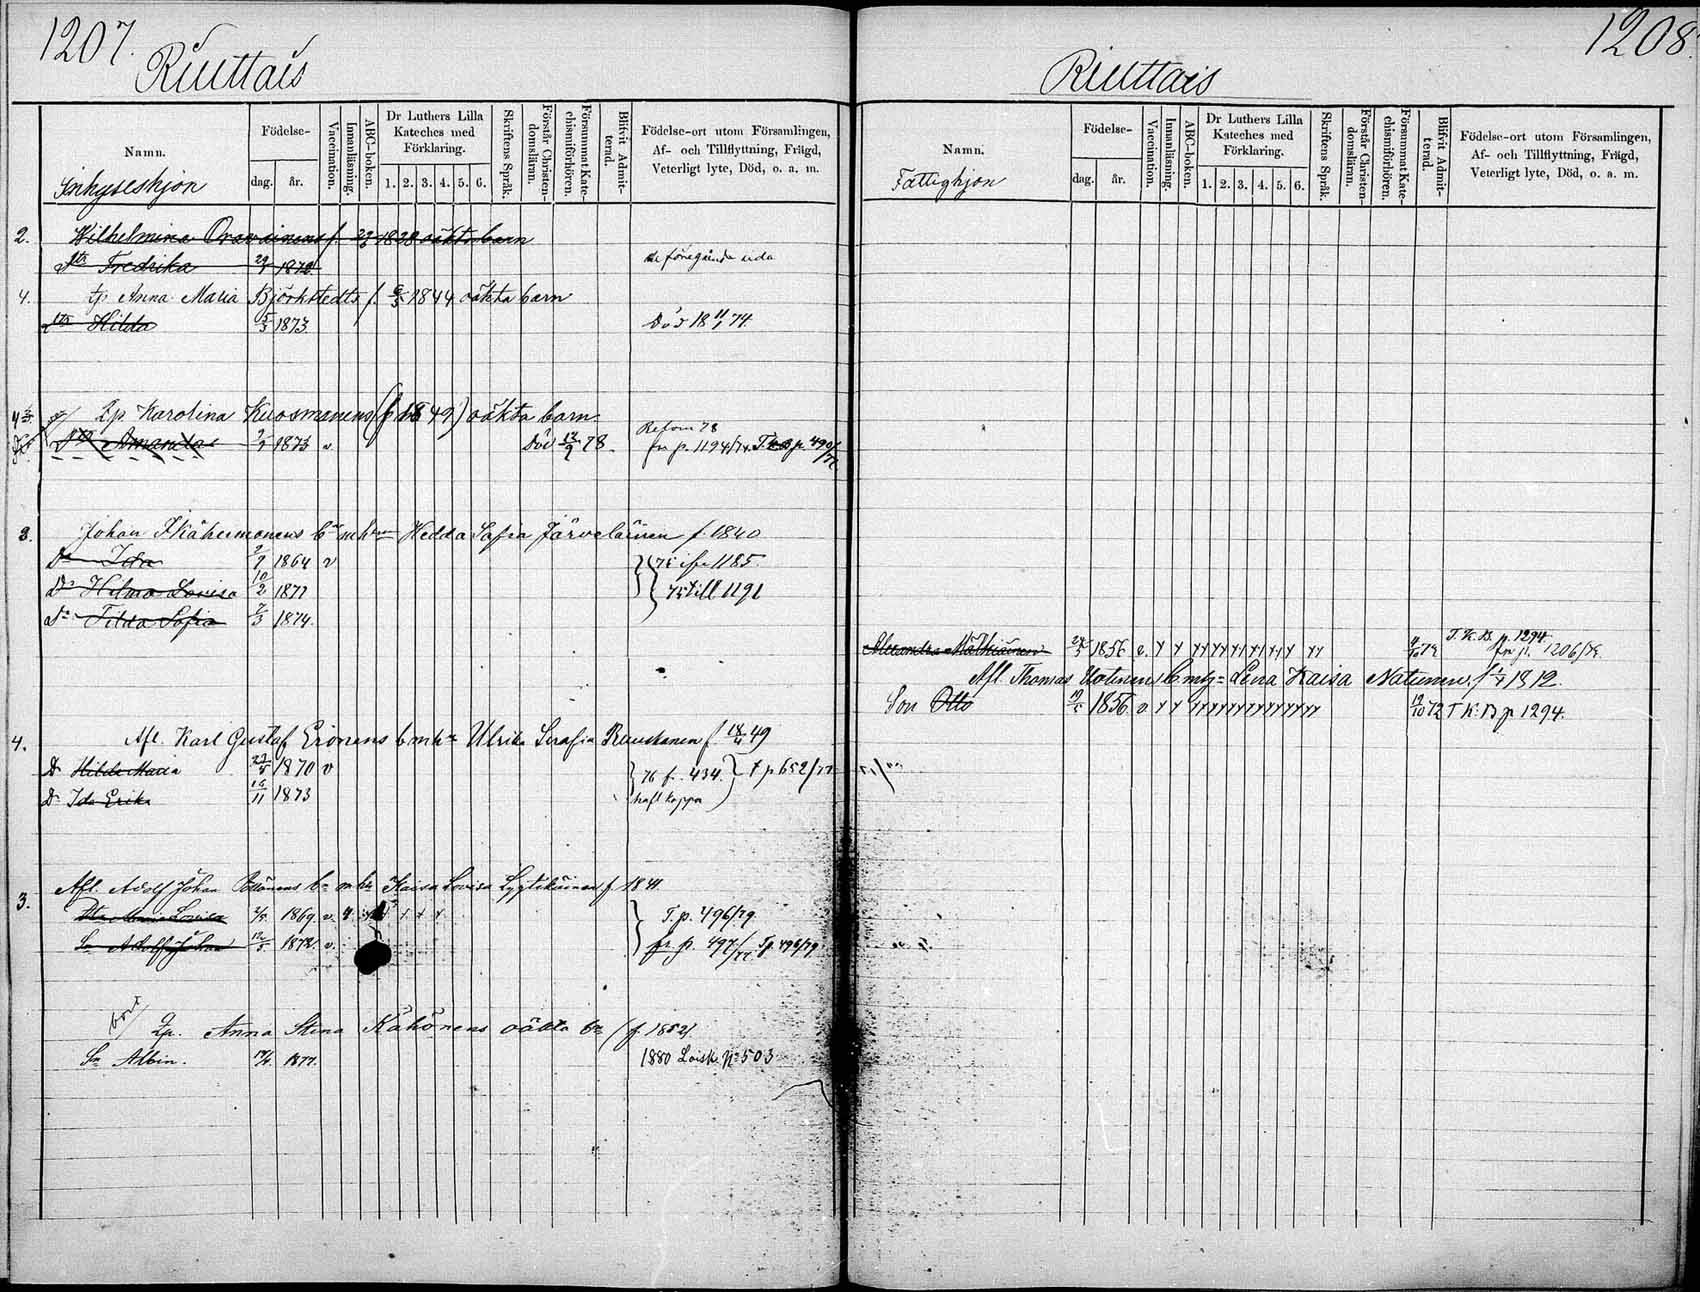 1207.
Riuttais
Namn.
Inhyseshjon
Födelse-
dag.
år.
Vaccination.
Innanläsning.
ABC-boken.
Dr Luthers Lilla Kateches med Förklaring.
1. 2. 3. 4. 5. 6.
Skriftens Språk.
Förstår Christendomsläran.
Försummat Katechismiförhören.
Blifvit Admitterad.
Födelse-ort utom Församlingen, Af- och Tillflyttning, Frägd, Veterligt lyte, Död, o. a. m.
2. Wilhelmina Oravainens f. 1838 oäkta barn
Dtr Fredrika 1872 föregående sida
4. Anna Maria Björkstedts f. 6/3 1844 oäkta barn
Dtr Hilda 5/3 1873 Död 18 11/1 74.
Qp. Karolina Kuosmanens (f. 1849) oäkta barn
Amanda 1873 v Död 12/9 78. Reform 78
fr p. 1194/74.
3. Johan Kähermonens b. m. h. Hedda Sofia Järveläinen f. 1840
Dr Ida 1864 v 75 ifr 1185.
Dr Hilma Lovisa 10/2 1871 75 till 1191
Dr Tilda Sofia 7/3 1874.
4. Afl. Karl Gustaf Eronens b m h Ulrika Serafia Ruuskanen f. 49
Dr Hilda Maria 1870 v 76 f. 434. t p 652/77
Dr Ida Erika 16/11 1873 haft koppor
3. Afl. Adolf Johan b. m. h. Kaisa Lovisa Lyytikäinen f. 1841
Dtr Maria Lovisa 1869 v. T. p. 496/79
Sn Adolf Johan 1872 v. fr. p. 497/77 Tp. 496/79
bort
Qp. Anna Stina Kähönens oäkta bn (f. 1852)
Sn Albin. 1877. 1880 Loiske No 503
1208.
Riuttais
Namn.
Fattighjon
Födelse-
dag.
år.
Vaccination.
Innanläsning.
ABC-boken.
Dr Luthers Lilla Kateches med Förklaring.
1. 2. 3. 4. 5. 6.
Skriftens Språk.
Förstår Christendomsläran.
Försummat Katechismiförhören.
Blifvit Admitterad.
Födelse-ort utom Församlingen, Af- och Tillflyttning, Frägd, Veterligt lyte, Död, o. a. m.
T. K. B. p. 1294.
Alexandra 1856 v. fr p. 1206/72.
Afl. Thomas b m h Lena Kaisa Natunen f. 1812.
Son Otto 1856 v 12/10 72 T K. B p 1294.